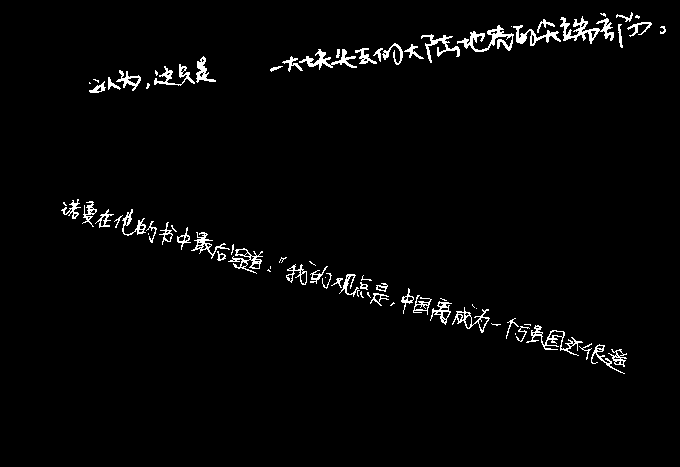 认为，这只是 一大块失去的大陆地壳的尖端部分。
诺曼在他的书中最后写道：“我的观点是，中国离成为一个强国还很遥